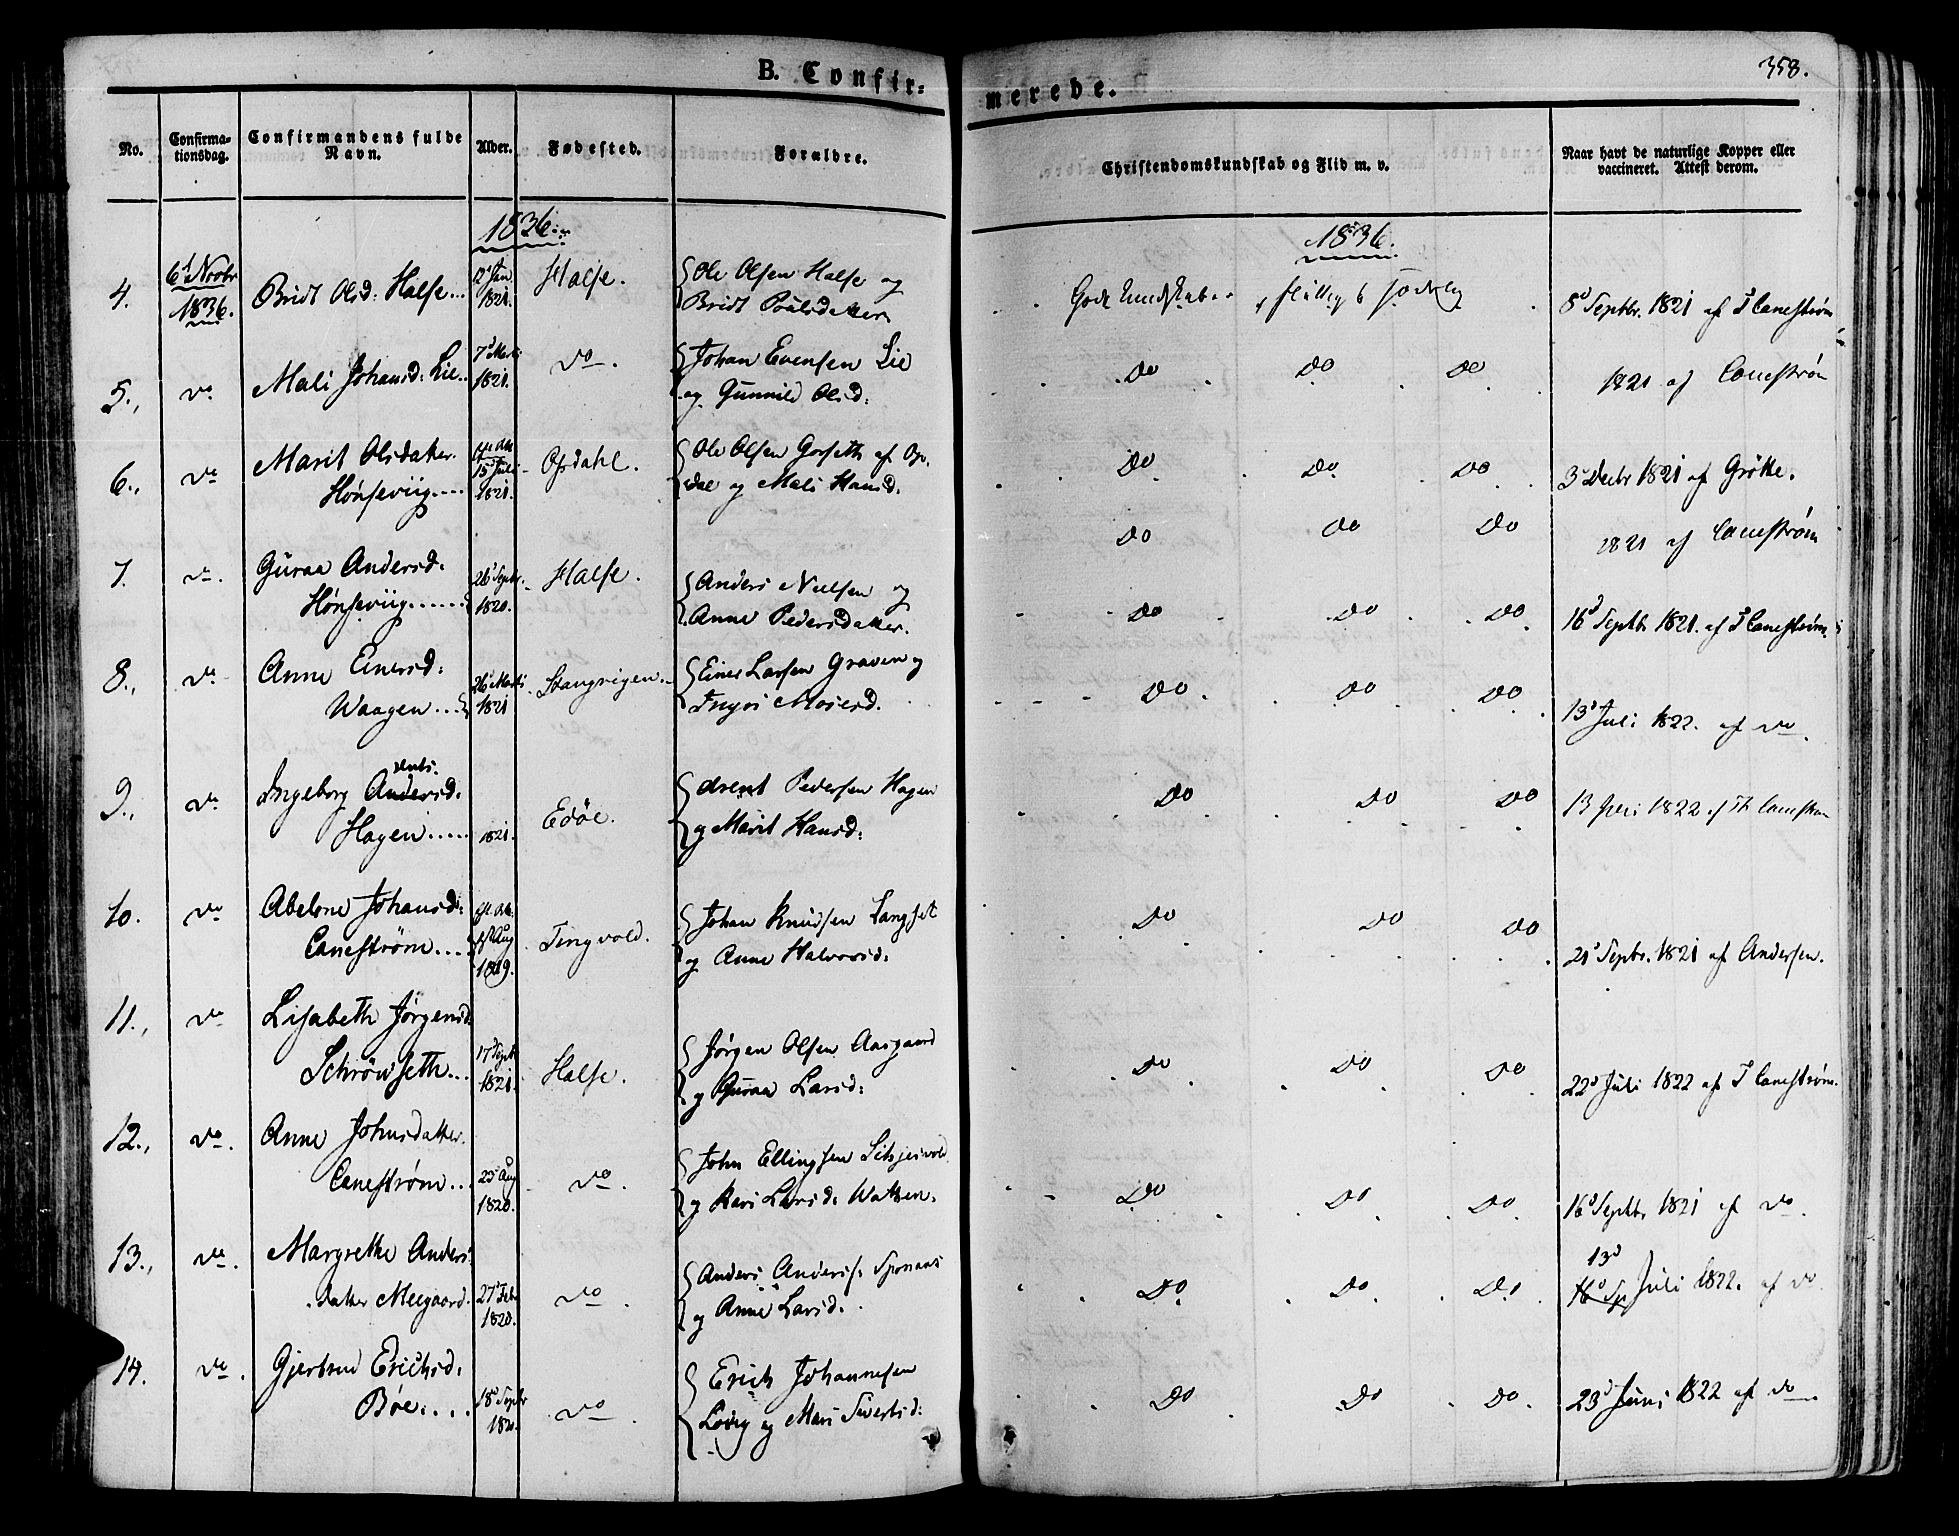 358.
B. Confir-
merede.
No.
Confirma-
tionsdag.
Confirmandens fulde
Navn.
Alder.
Fødested.
Forældre.
Christendomskundskab og Flid m. v.
Naar havt de naturlige Kopper eller
vaccineret. Attest derom.
1836.
1836.
4.
6d Novbr
1836.
Bridt Olsd: Halse...
12 Jan
1821.
Halse.
Ole Olsen Halse og
Bridt
Gode Kundskaber
8d Septbr. 1821 af T Canestrøm
5.,
do
Mali Johansd: Lie..
7d Marts
1821.
do.
Johan Evensen Lie
og Gunnild Olsd:
Do Do Do
1821 af Canestrøm
6.,
do
Marit Olsdatter
Hønseviig....
15 Juli
1821.
Opdahl.
Ole Olsen Gorseth af Op-
dal og Mali Hansd.
Do Do Do
3 Decbr 1821 af Grøtte.
Do Do Do
1821 af Canestrøm
7.
do.
Guraa Andersd.
Hønseviig......
26d Septbr.
1820.
Halse.
Anders Nielsen og
Anne Pedersdatter.
Do Do Do
16d Septbr 1821. af T Canestrøm.
8.,
do
Anne Einersd:
Waagen...
26d Marts
1821
Stangvigen.
Einer Larsen Graven og
Ingri
Do Do Do
13d Juli 1822. af do.
9.,
do
Ingeborg Andersd.
Hagen.....
1821.
Edöe.
Arent Pedersen Hagen
og Marit Hansd:
Do Do Do
13 Juli 1822 af Th Canestrøm
10.
do
Abelone Johansd:
Canestrøm....
Aug
1819.
Tingvold.
Johan Knudsen Langset
og Anne Halvorsd:
Do Do Do
21d Septbr. 1821 af Andersen.
11.,
do
Lisabeth Jørgensd:
17d Septbr
1821.
Halse.
Jørgen Olsen Aasgaard
og Guraa Larsd:
Do Do Do
22d Juli 1822 af T Canestrøm.
12.,
do.
Anne Johnsdatter
Canestrøm...
23d Aug
1820.
do.
John Ellingsen
og Kari Larsd:
Do Do Do
16d Septbr 1821 af do.
13.,
do.
Margrethe Anders
datter Meegaard.
27d Febr
1820.
do.
Anders Anders:
og Anne Larsd:
Do Do Do
13d
16d Sp Juli 1822. af do
14.
do.
Gjertrud Erichsd:
Bøe....
18d Septbr
1820.
do.
Erich Johannesen
og Mari Sivertsd:
Do Do Do
23d Juni 1822 af do.